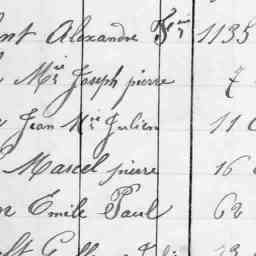 Alexandre Fçois 1135
Mie Joseph pierre 7
Jean Mie Julien 11
Marcel pierre 16
Emile Paul 62